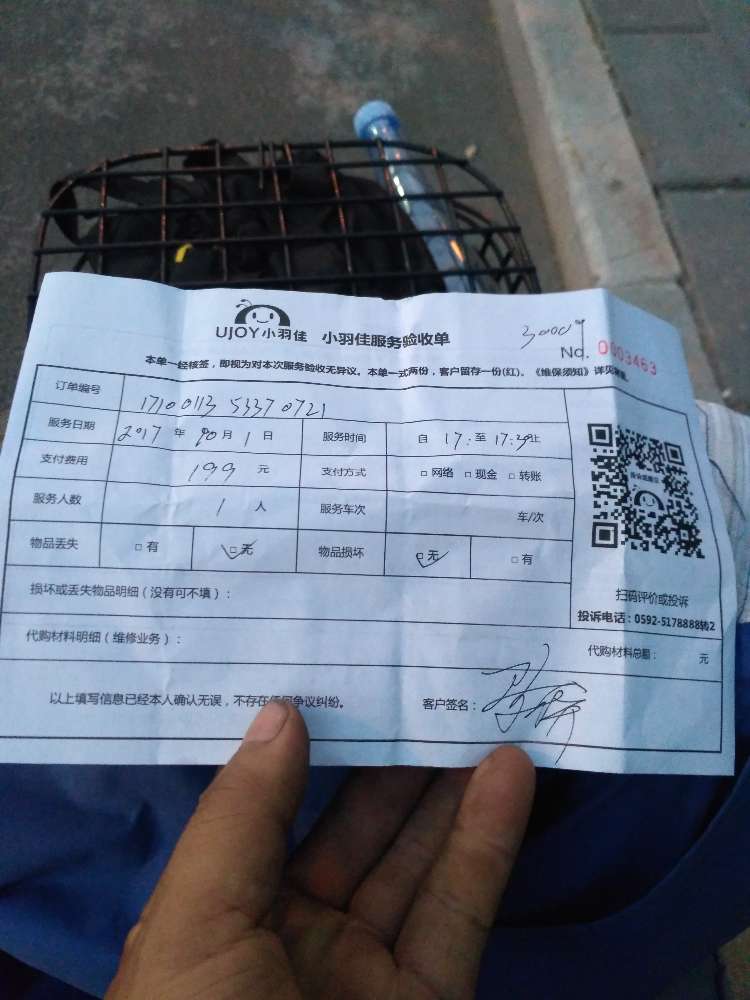 UJOY小羽佳 小羽佳服务验收单
No. 0003463
本单一经核签，即视为对本次服务验收无异议。本单一式两份，客户留存一份(红)。《维保须知》详见
订单编号 17100113 53370721
服务日期 2017 年 10 月 1 日 服务时间 自 17: 至 17:29止
支付费用 199 元 支付方式 □ 网络 □ 现金 □ 转账
服务人数 1 人 服务车次 车/次
物品丢失 □ 有 □ 无 物品损坏 □ 无 □ 有
损坏或丢失物品明细（没有可不填）：
扫码评价或投诉
投诉电话：0592-5178888转2
代购材料明细（维修业务）： 代购材料总额： 元
以上填写信息已经本人确认无误，不存在任何争议纠纷。 客户签名：